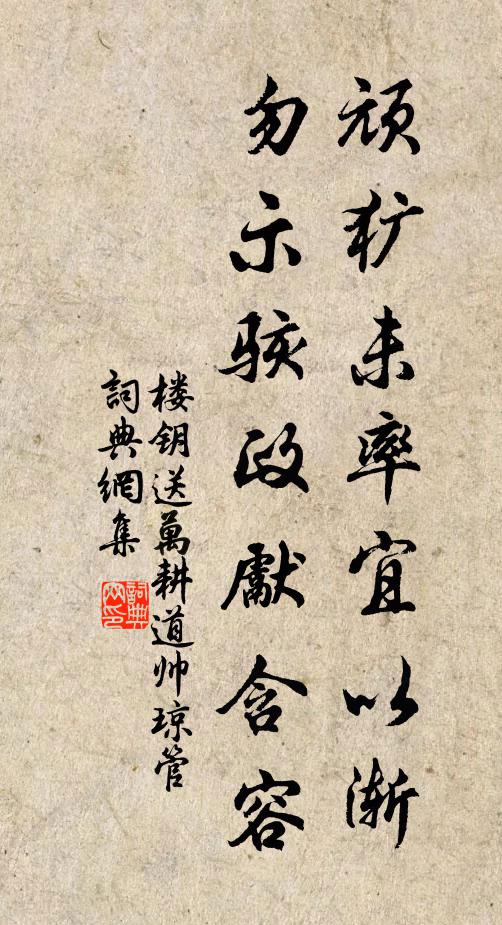 顽犷未率宜以渐
勿示骇政献含容
楼钥送萬耕道帅琼管
詞典網集
詞典
网印